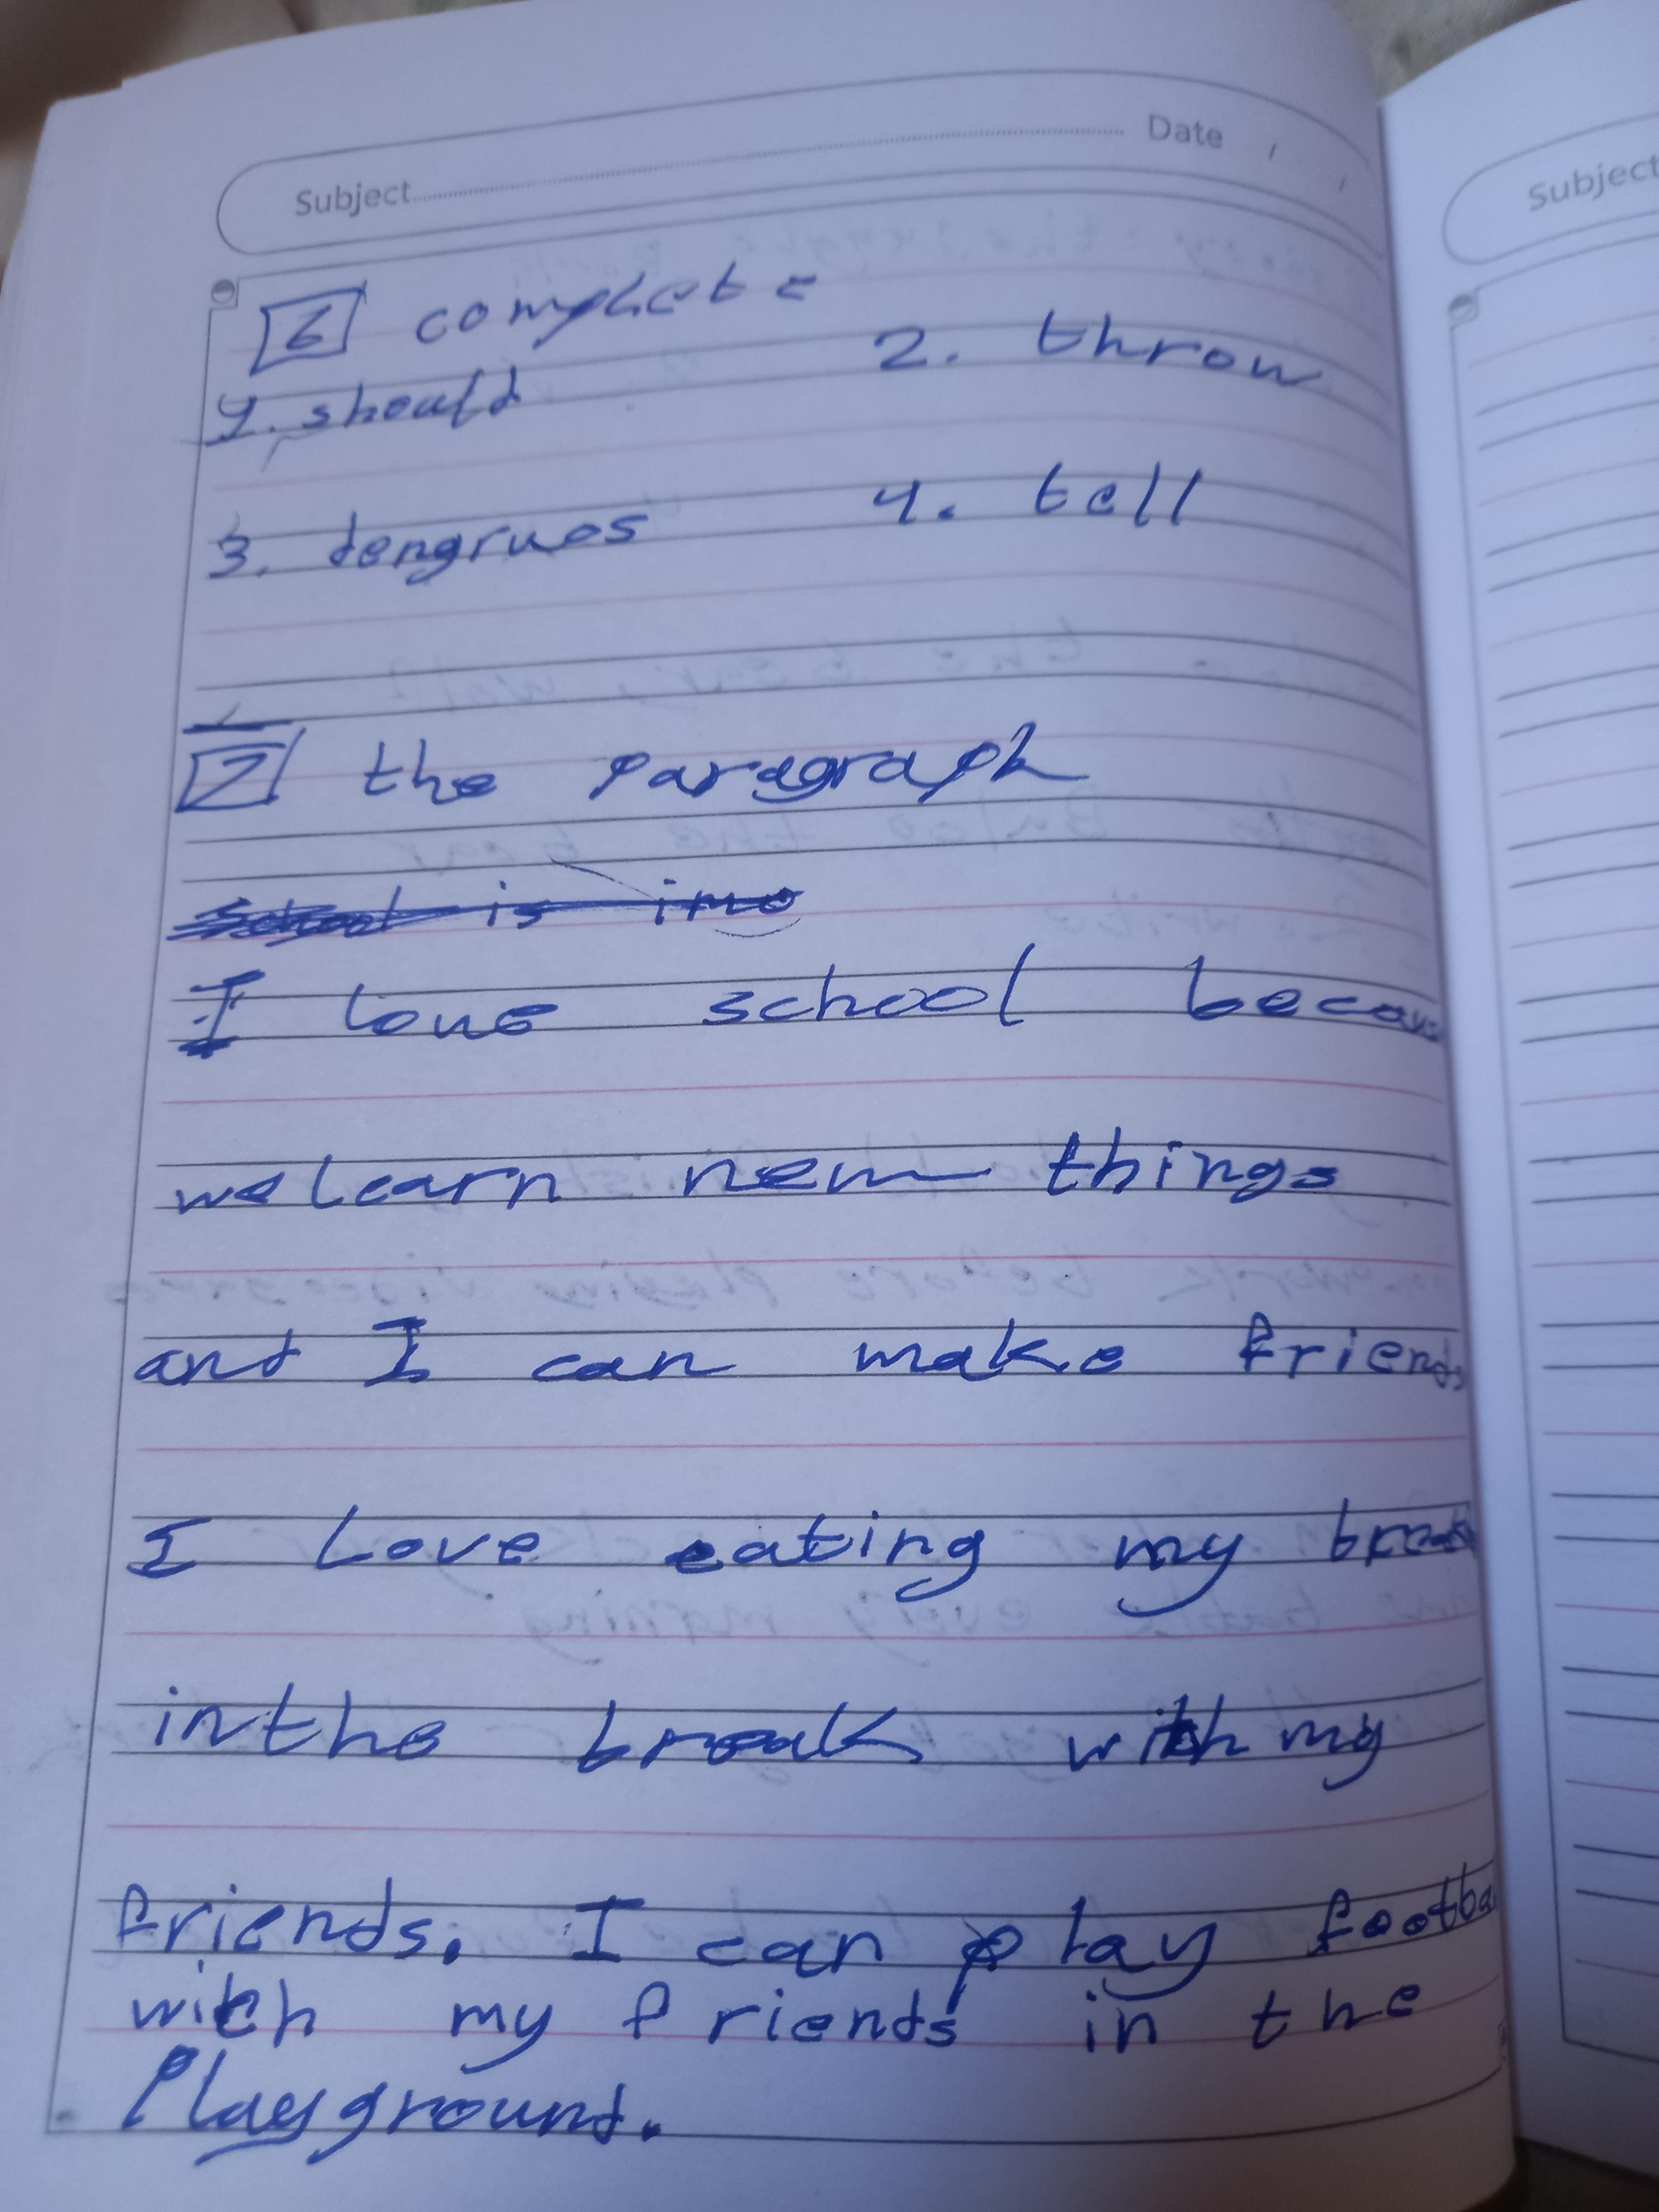 Subject Date / /
Subject
6 complete
1. should 2. throw
3. dengruos 4. tell
7 the paragraph
is
I love school becaus
we learn new things
and I can make friends
I Love eating my break
in the break with my
friends. I can play footba
with my friends in the
Playground.